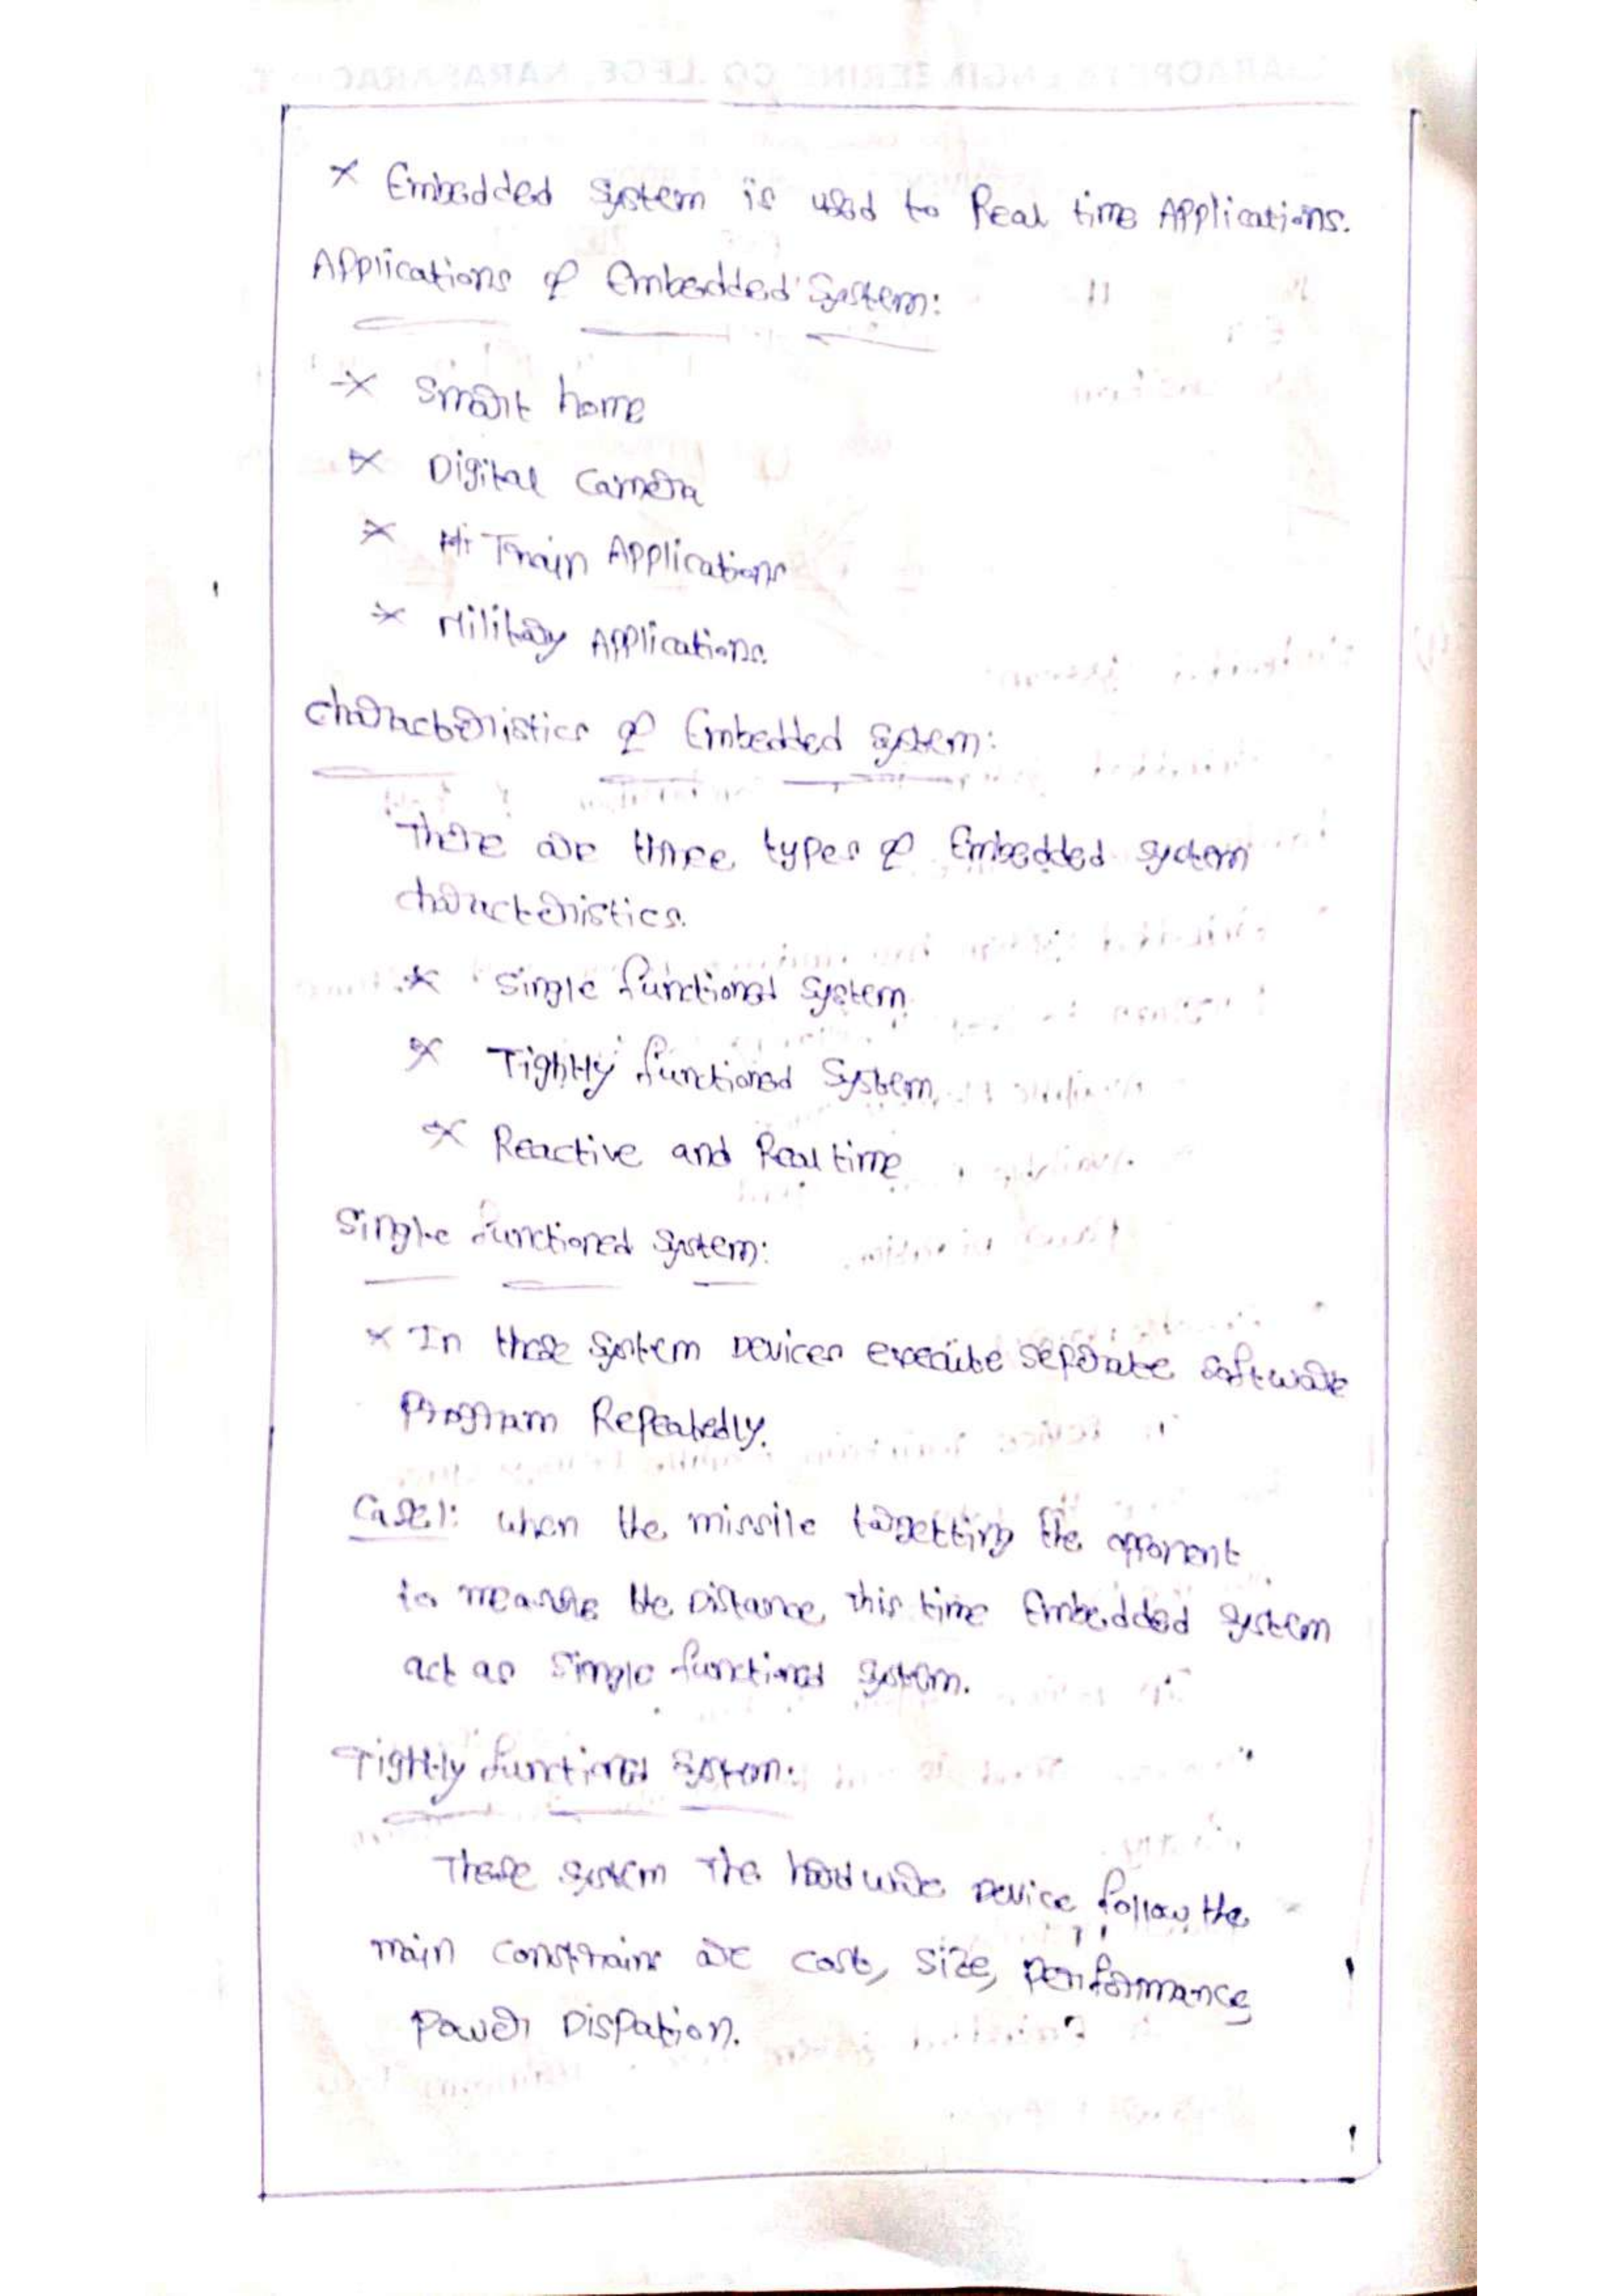 * Embedded System is used to Real time Applications.
Applications of Embedded System:
* Smart home
* Digital Camera
* Train Applications
* Military Applications.
Characteristics of Embedded System:
There are three types of Embedded System
characteristics.
* Single functional System
* Tightly functioned System
* Reactive and Real time
Single functioned System:
* In these System Devices execute seperate software
Program Repeatedly.
Case1: when the missile targetting the opponent
to measure the Distance, this time Embedded System
act as Single functional System.
Tightly functional System:
These System The hardware Device follow the
main constrains are cost, size, performance
power Dispation.